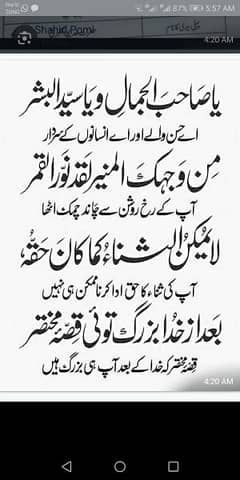 87% 5:57 AM
Shahid Pami
4:20 AM
يا صاحب الجمال و يا سيد البشر
اے حسن والے اور اے انسانوں کے سردار
من وجهك المنير لقد نور القمر
آپ کے رخِ روشن سے چاند چمک اٹھا
لا يمكن الثناء كما كان حقه
آپ کی ثناء کا حق ادا کرنا ممکن ہی نہیں
بعد از خدا بزرگ توئی قصہ مختصر
قصہ مختصر کہ خدا کے بعد آپ ہی بزرگ ہیں
4:20 AM